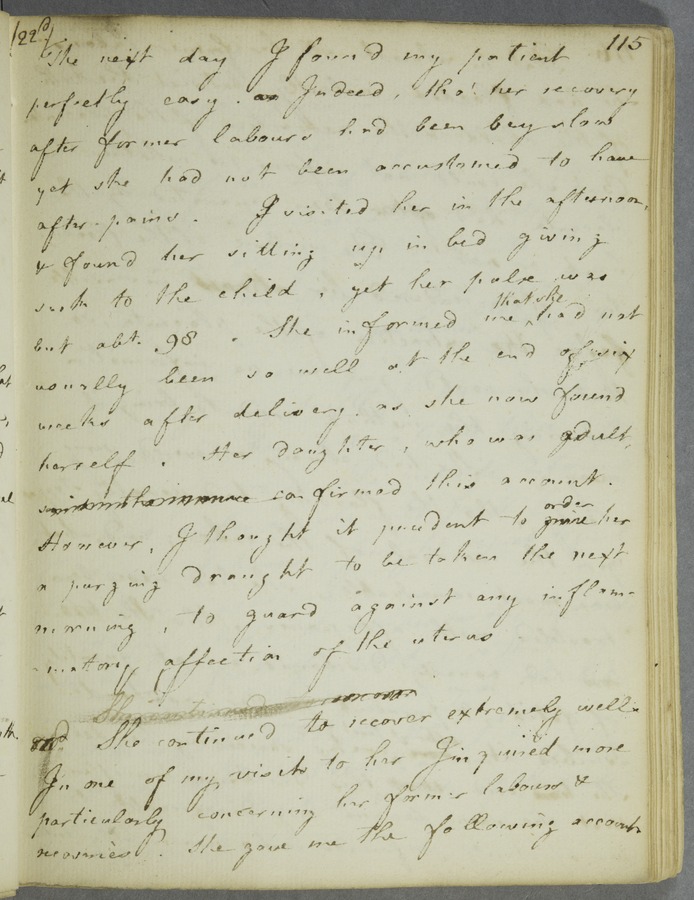 /22d/
115
The next day I found my patient
perfectly easy. Indeed, tho' her recovery
after former labours had been very slow
yet she had not been accustomed to have
after-pains. I visited her in the afternoon,
& found her sitting up in bed giving
suck to the child, yet her pulse was
but abt. 98. She informed me that she had not
usually been so well at the end of six
weeks after delivery as she now found
herself. Her daughter, who was adult,
confirmed this account.
However, I thought it prudent to order give her
a purging draught to be taken the next
morning, to guard against any inflam-
-matory affection of the uterus
She continued
She continued to recover extremely well.
In one of my visits to her I inquired more
particularly concerning her former labours &
recoveries. She gave me the following account